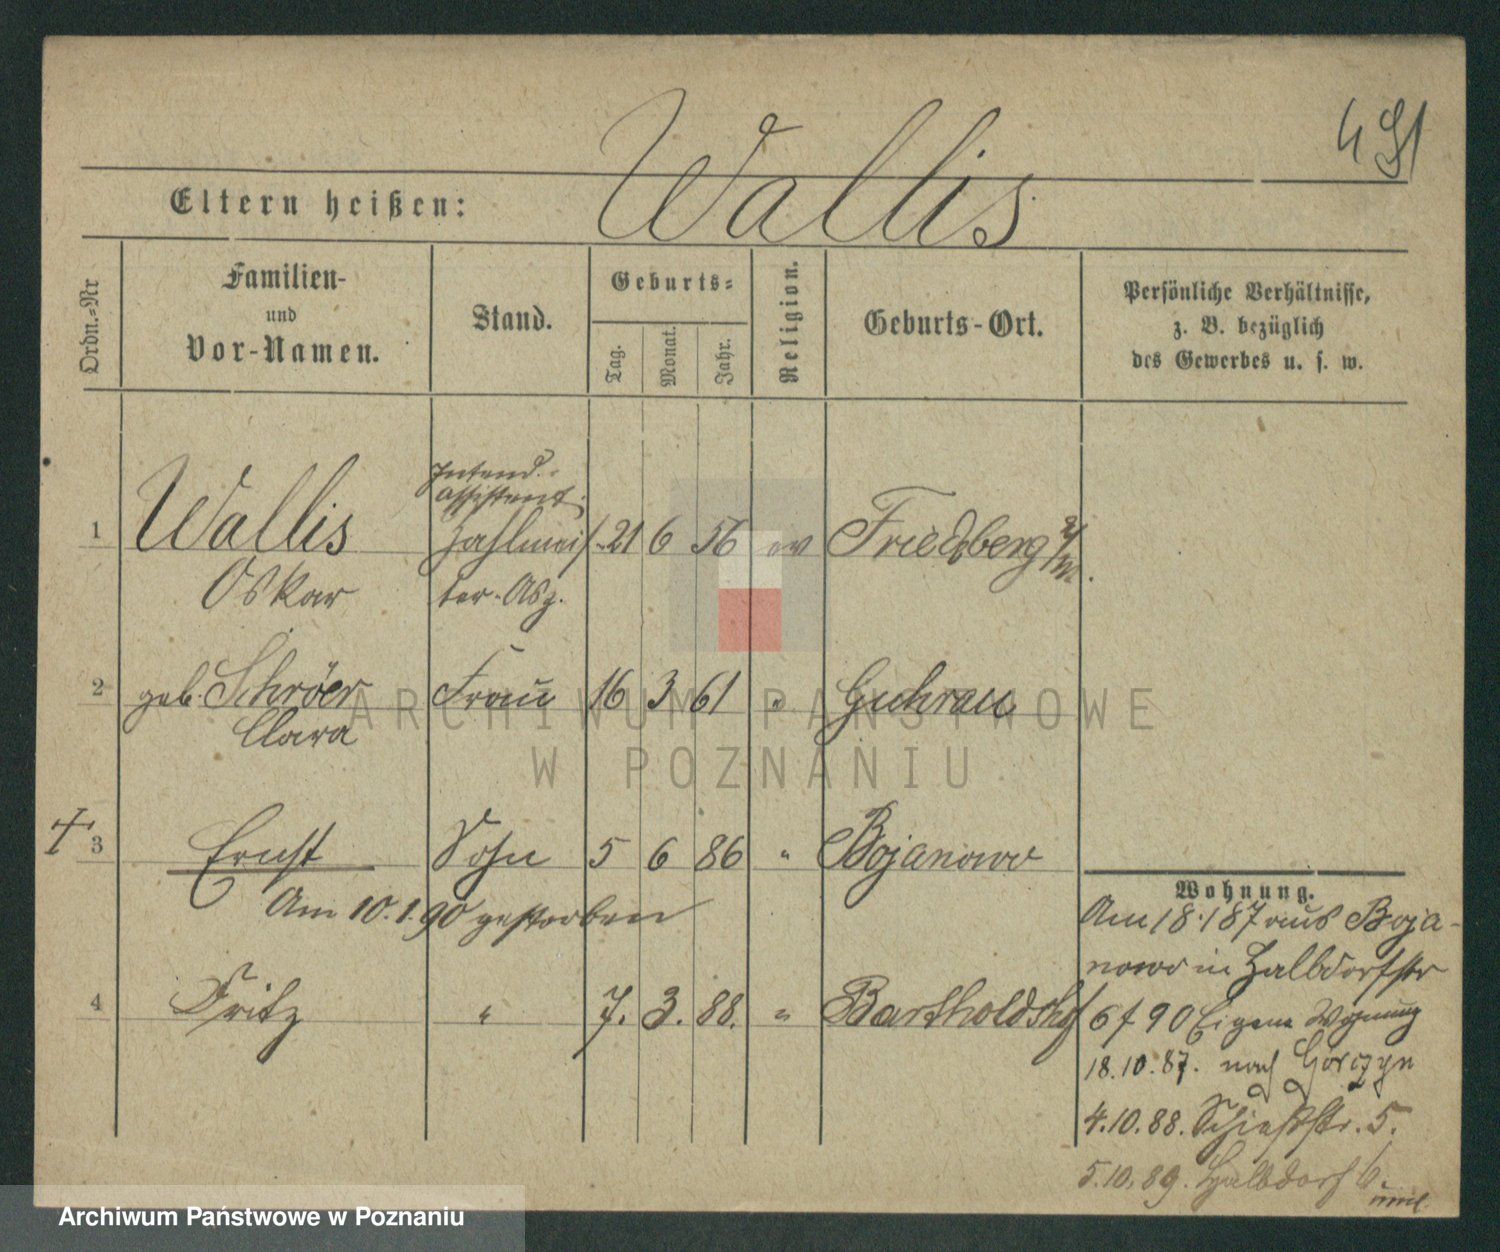 491
Eltern heißen: Wallis
Ordn.=Nr
Familien-
und
Vor-Namen.
Stand.
Geburts=
Tag.
Monat.
Jahr.
Religion.
Geburts-Ort.
Persönliche Verhältnisse,
z. B. bezüglich
des Gewerbes u. s. w.
Intend.-
assistent
1 Wallis Zahlmeis 21 6 56 ev Friedberg
Oskar ter-Asp.
2 geb. Schröer Frau 16 3 61 " Guhrau
Clara
3 Ernst Sohn 5 6 86 " Bojanowo
Am 10.1.90 gestorben
4 Fritz " 7. 3. 88. " Bartholdshof
Wohnung.
Am 18.1 87 aus Boja-
nowo in Halbdorfstr
6 f 90 Eigene Wohnung
18.10.87. nach Gorczyn
4.10.88. Schießstr. 5.
5.10.89. Halbdorf 6
ARCHIWUM PAŃSTWOWE
W POZNANIU
Archiwum Państwowe w Poznaniu